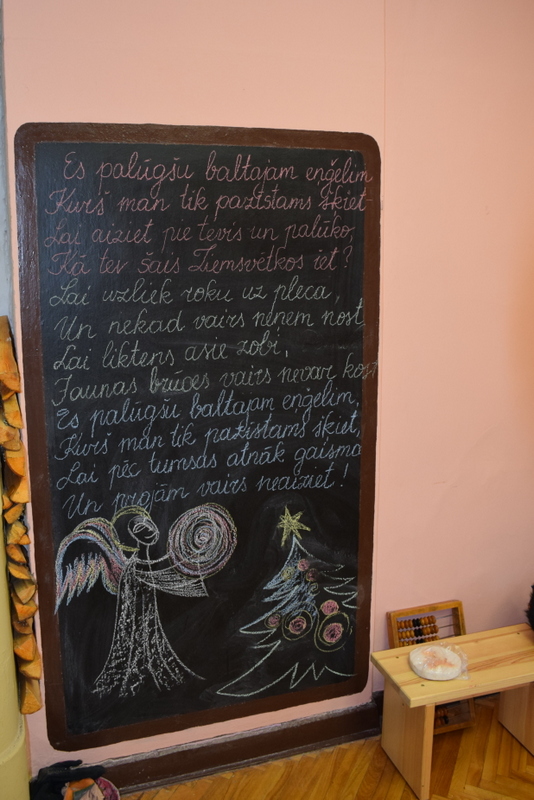 Es palūgšu baltajam eņģelim
Kurš man tik pazīstams šķiet
Lai aiziet pie tevis un palūko,
Kā tev šais Ziemsvētkos iet?
Lai uzliek roku uz pleca,
Un nekad vairs neņem nost
Lai liktens asie zobi,
Jaunas brūces vairs nevar kost
Es palūgšu baltajam eņģelim,
Kurš man tik pazīstams šķiet,
Lai pēc tumsas atnāk gaisma
Un projām vairs neaiziet!